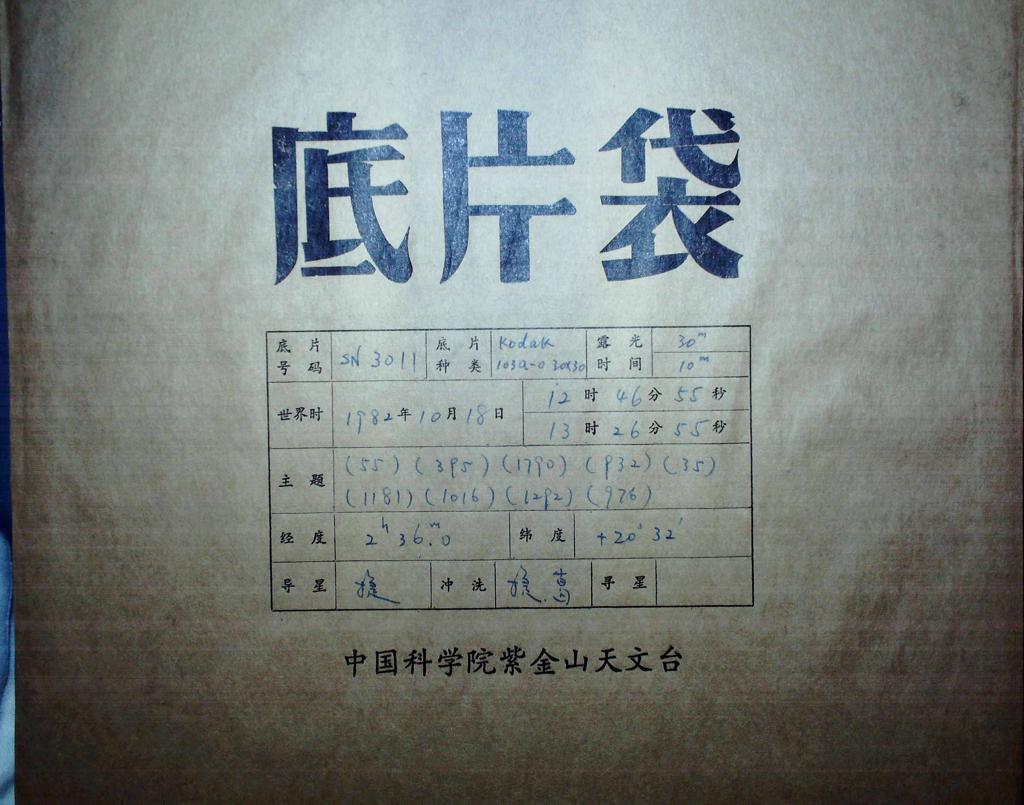 底片袋
底片号码 SN 3011 底片种类 Kodak 103a-O 30x30 露光时间 30m 10m
世界时 1982年10月18日 12时46分55秒
13时26分55秒
主题 (55) (395) (1790) (932) (35)
(1181) (1016) (1292) (976)
经度 2h 36m.0 纬度 +20° 32'
导星 冲洗 葛 寻星
中国科学院紫金山天文台